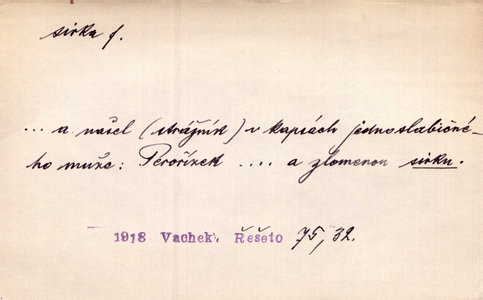 sirka f.
... a našel (strážník) v kapsách jednoslabičné-
ho muže: Perořízek .... a zlomenou sirku.
1918 Vachek. Řešeto 75, 32.